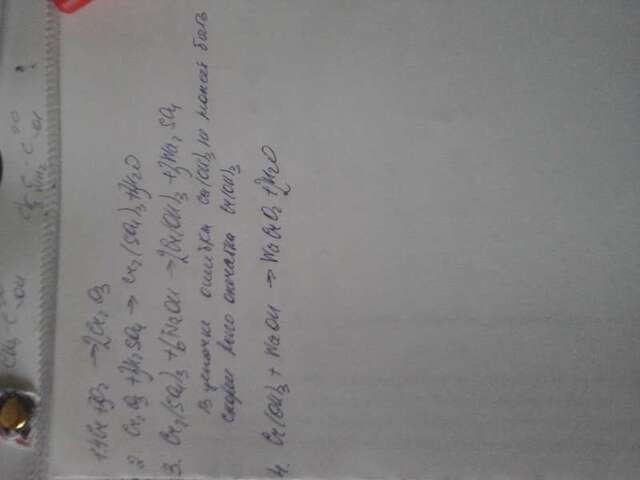 CH₃-C
OH
C - C - C
NH₂ OH
1. 4Cr + 3O₂ → 2Cr₂O₃
2. Cr₂O₃ + 3H₂SO₄ → Cr₂(SO₄)₃ + 3H₂O
3. Cr₂(SO₄)₃ + 6NaOH → 2Cr(OH)₃ + 3Na₂SO₄
В цепочке ошибка Ca(OH)₃ не может быть
скорей всего опечатка Cr(OH)₃
4. Cr(OH)₃ + NaOH → NaCrO₂ + 2H₂O